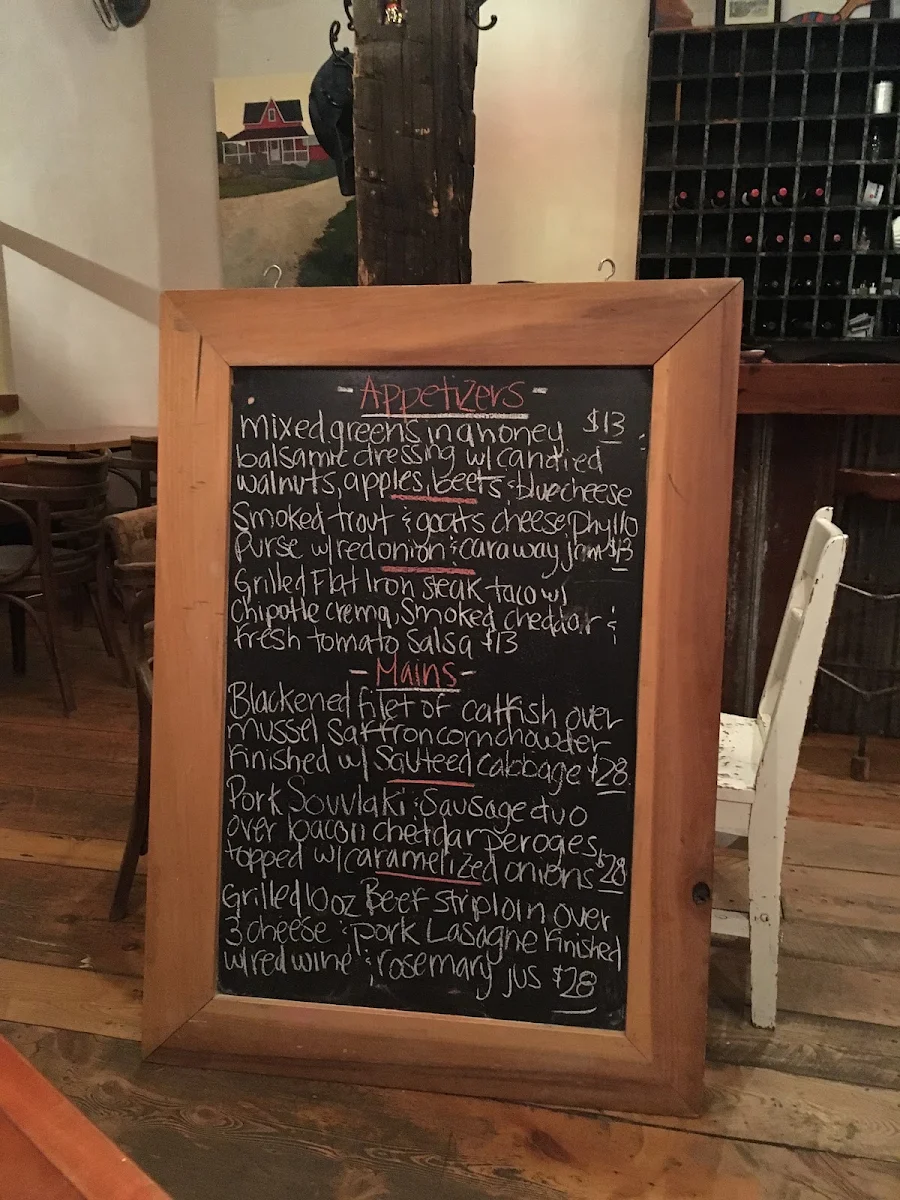 - Appetizers -
mixed greens in a honey $13
balsamic dressing w/ candied
walnuts, apples, beets & blue cheese
Smoked trout & goats cheese phyllo
purse w/ red onion & caraway jam $13
Grilled Flat Iron steak taco w/
chipotle crema, smoked cheddar &
fresh tomato salsa $13
- Mains -
Blackened filet of catfish over
mussel saffron corn chowder
finished w/ Sauteed cabbage $28
Pork Souvlaki & Sausage duo
over bacon cheddar peroges,
topped w/ caramelized onions $28
Grilled 10oz Beef striploin over
3 cheese & pork Lasagne Finished
w/ red wine & rosemary jus $28